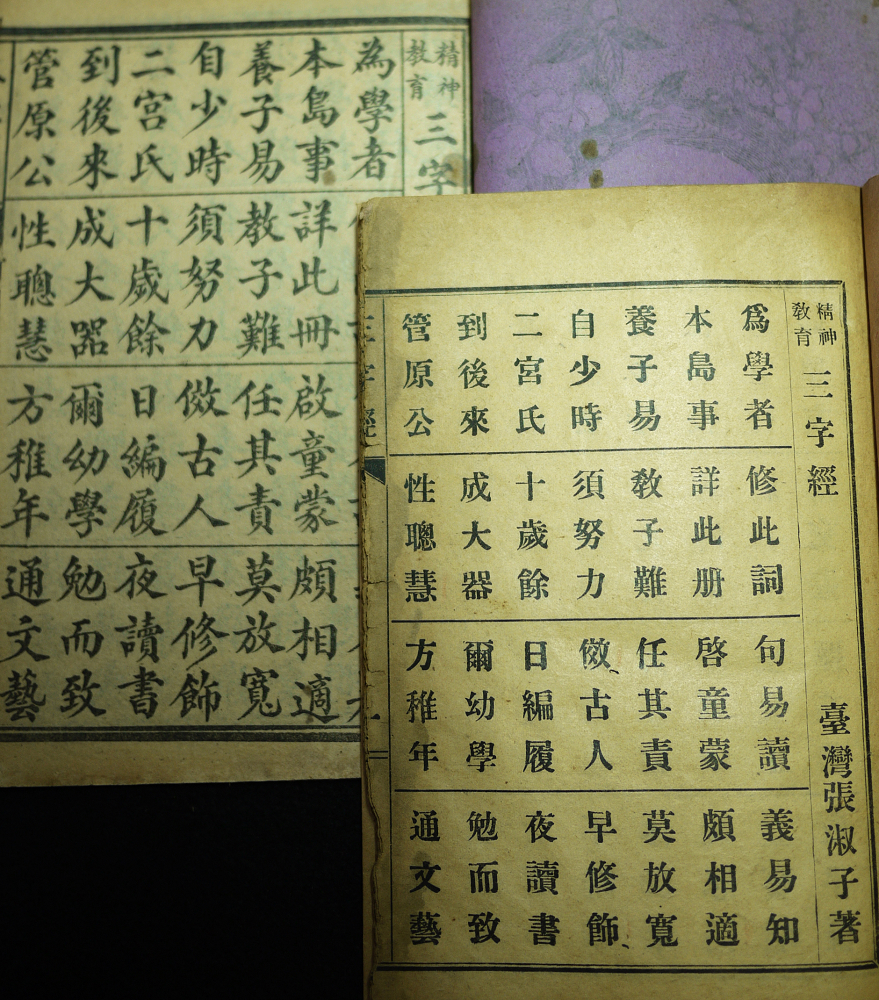 精神
教育
三字經 臺灣張淑子著
爲學者 修此詞 句易讀 義易知
本島事 詳此册 啓童蒙 頗相適
養子易 敎子難 任其責 莫放寬
自少時 須努力 傚古人 早修飾
二宮氏 十歲餘 日編履 夜讀書
到後來 成大器 爾幼學 勉而致
管原公 性聰慧 方稚年 通文藝
三字經
精神
教育
三字
為學者
本島事 詳此冊 啟童蒙 頗相適
養子易 教子難 任其責 莫放寬
自少時 須努力 傚古人 早修飾
二宮氏 十歲餘 日編履 夜讀書
到後來 成大器 爾幼學 勉而致
管原公 性聰慧 方稚年 通文藝